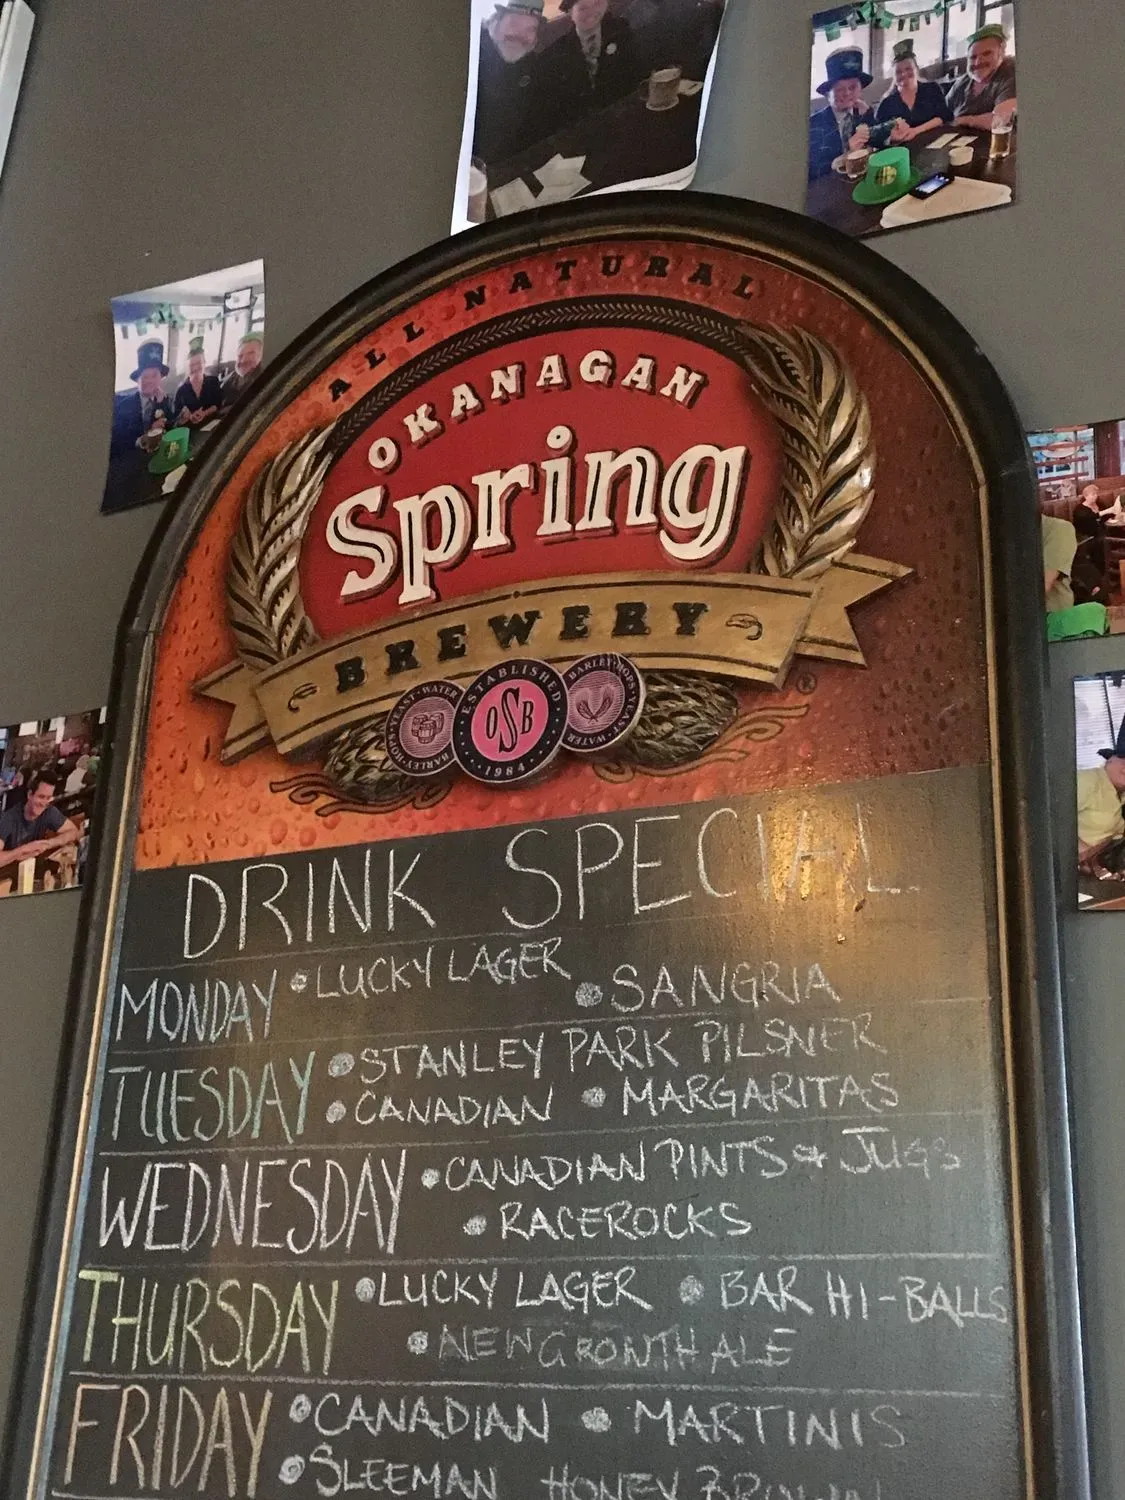 ALL NATURAL
OKANAGAN
Spring
BREWERY
YEAST · WATER
BARLEY · HOPS
ESTABLISHED
OSB
1984
BARLEY · HOPS
YEAST · WATER
®
DRINK SPECIAL
MONDAY • LUCKY LAGER
• SANGRIA
TUESDAY • STANLEY PARK PILSNER
• CANADIAN • MARGARITAS
WEDNESDAY • CANADIAN PINTS & JUGS
• RACEROCKS
THURSDAY • LUCKY LAGER • BAR HI-BALLS
• NEW GROWTH ALE
FRIDAY • CANADIAN • MARTINIS
• SLEEMAN HONEY BROWN